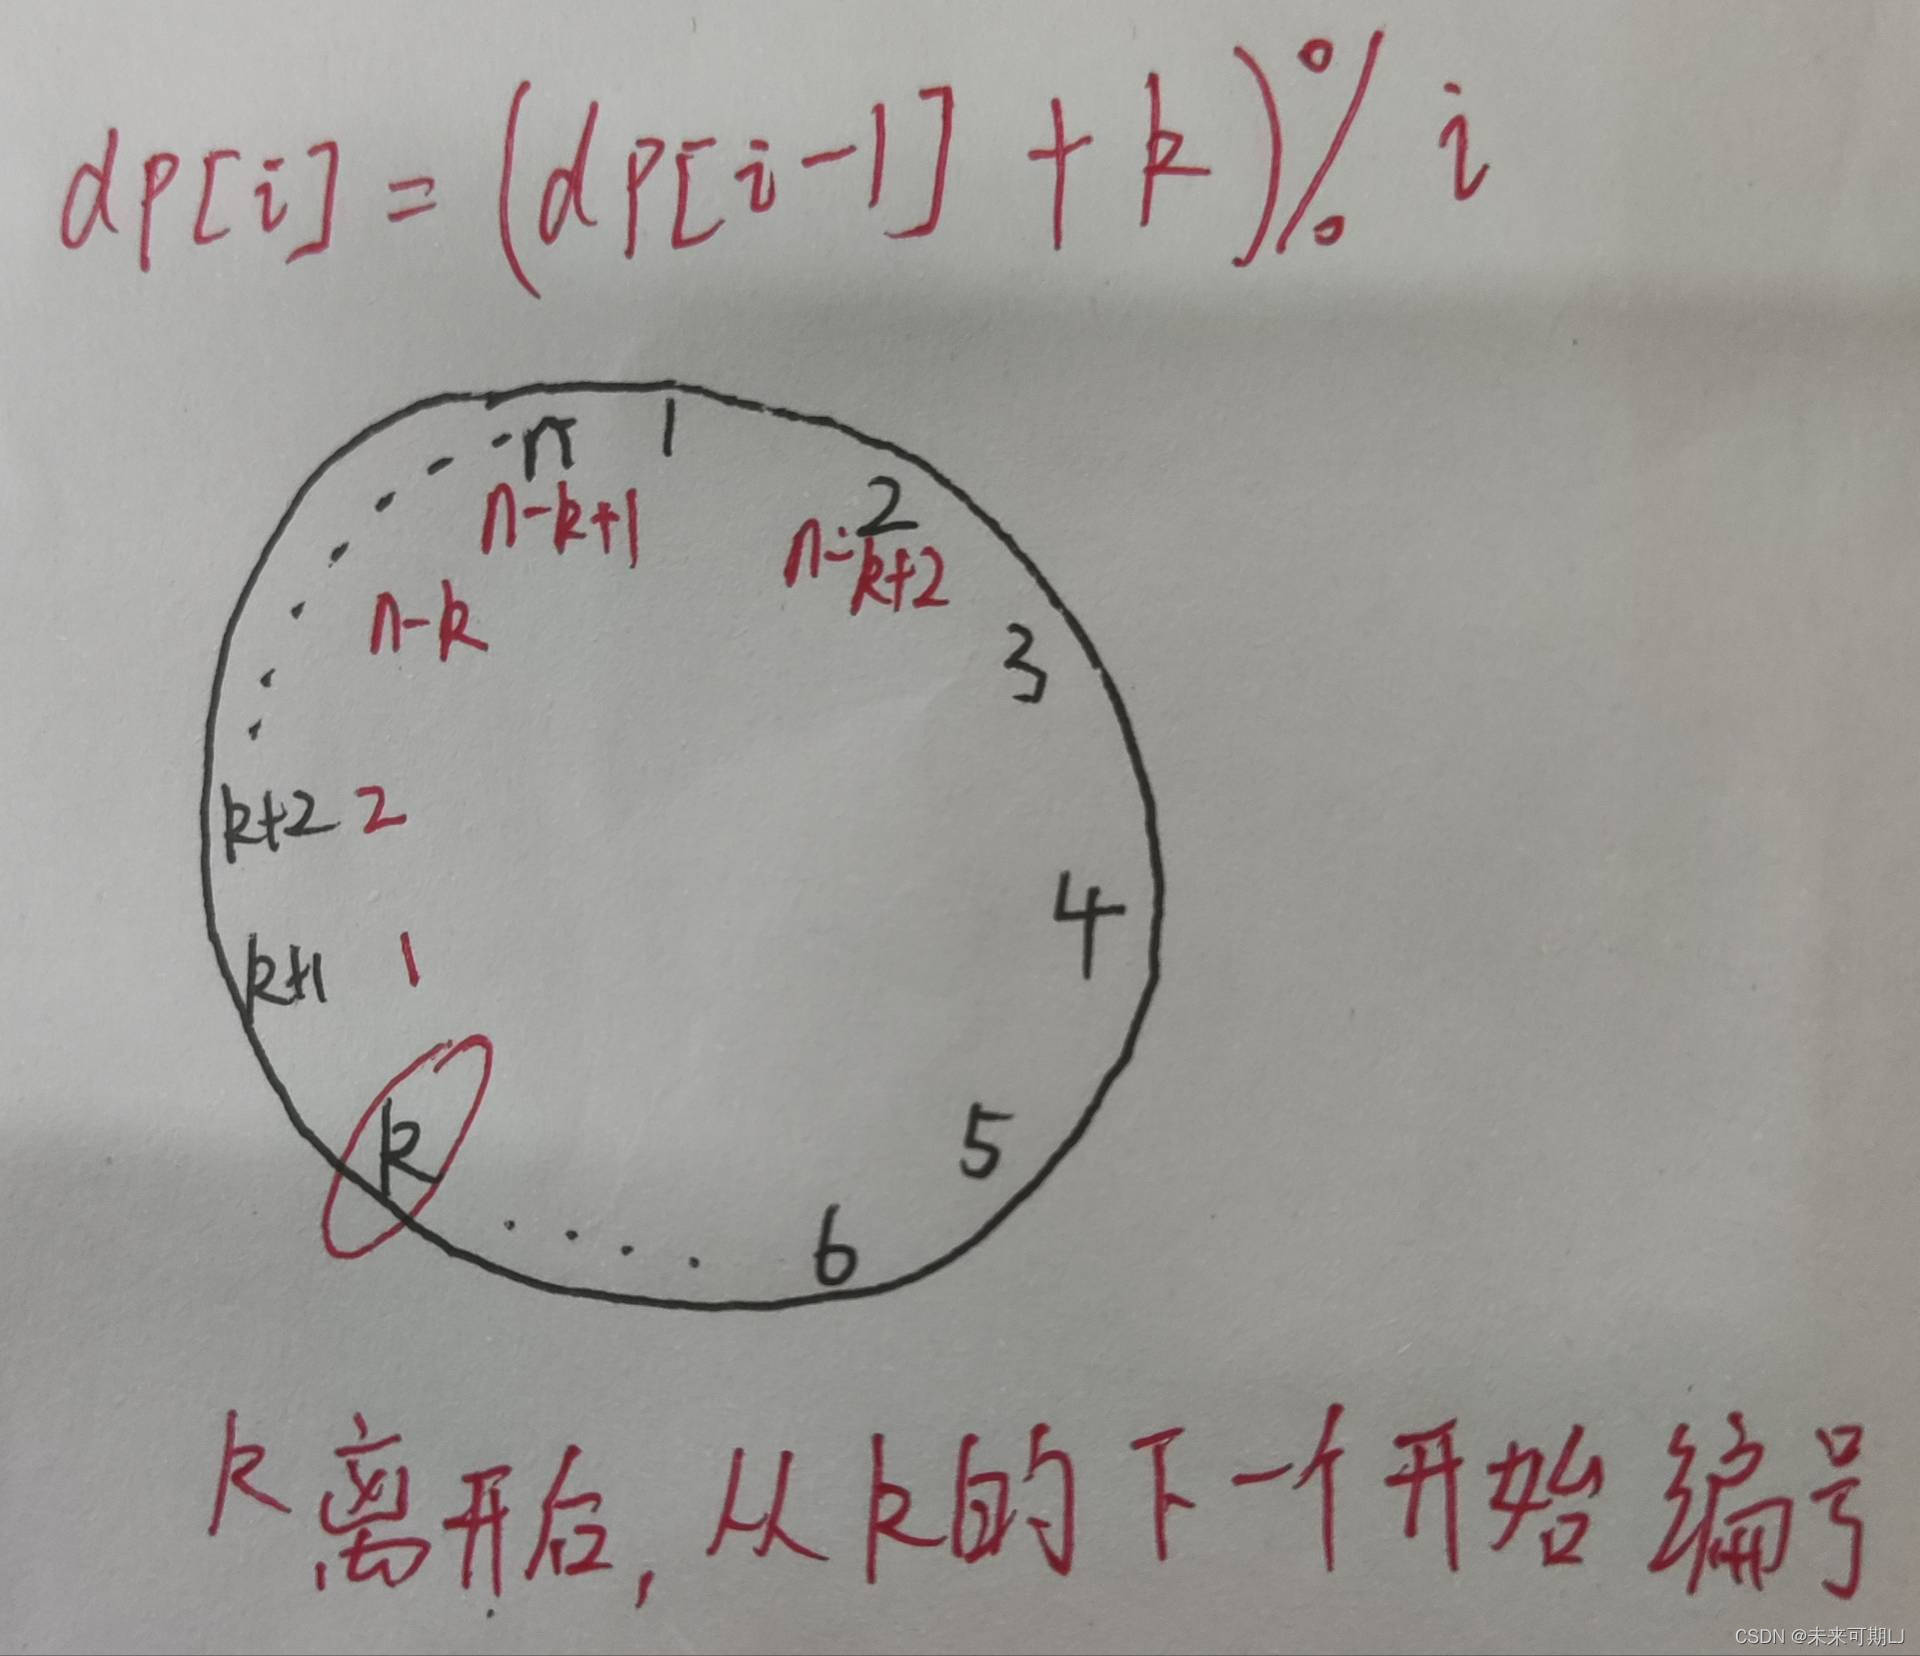 dp[i] = (dp[i-1] + k) % i
n 1
n-k+1
2
n-k+2
n-k
3
k+2 2
4
k+1 1
k
5
6
k离开后, 从k的下一个开始编号
CSDN @未来可期LJ